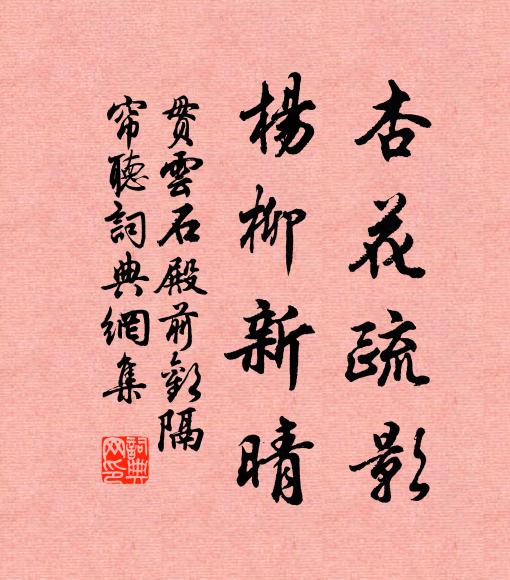 杏花疏影
楊柳新晴
貫雲石殿前歡隔
帘聽詞典網集
詞典網印